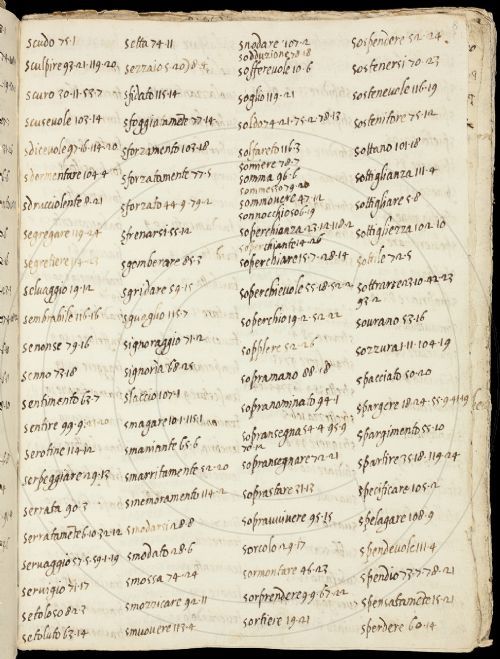 scudo 75·1
sculpire 93·21·119·20
scuro 30·11·53·7
scusevole 103·14
sdicevole 97·16·114·20
sdormentare 104·4
sdrucciolente 8·21
segregare 119·24
segretiere
selvaggio 19·12
sembiabile 116·16
senonse 79·16
senno 73·18
sentimento 63·7
sentire 99·9
serotine 114·12
serpeggiare 29·13
serrata 90·3
serratamēte 6·10·32·12
servaggio 57·5·59·1·19
servigio 71·17
setoloso 82·3
setoluto 63·14
setta 74·11
sezzaio 5·20
sfidato 115·14
sfoggiatamēte 77·14
sforzamento 103·18
sforzatamente 77·5
sforzato 44·9·79·2
sfrenarsi 55·12
sgomberare 85·3
sgridare 59·15
sguaglio 115·7
signoraggio 71·2
signoria 68·25
slaccio 107·1
smagare 101·115·1
smaniante 65·6
smarritamente 52·20
smemoramento 114·2
smodarsi 28·8
smodato 28·6
smossa 74·24
smozzicare 92·11
smuovere 113·4
snodare 107·2
sodduzione 78·18
sofferevole 10·6
soglio 119·21
soldo 74·21·75·2·78·13
solfareto 116·3
somiere 78·7
somma 96·6
sommesso 79·20
sommovere 47·12
sonnocchioso 6·19
soperchianza 23·12·118·2
soperchiante 14·26
soperchiare 15·7·28·14
soperchievole 55·18·52·2
soperchio 19·2·52·22
sopplere 52·26
sopramano 88·18
sopranominato 94·1
sopransegna 54·4·95·9
70·12
sopransegnare 72·21
soprastare 31·13
sopravvivere 95·15
sorcolo 29·17
sormontare 46·23
sorprendere 99·67·22
sortiere 19·21
sospendere 52·24
sostenersi 70·23
sostenevole 116·19
sostenitore 75·12
sottano 101·18
sottiglianza 111·4
sottigliare 5·8
sottigliezza 102·10
sottile 72·5
sottrarsene 23·10·42·23
93·2
sovrano 53·16
sozzura 1·11·104·19
spacciato 50·20
spargere 18·24·55·9·41·19
spargimento 55·10
spartire 35·18·119·24
specificare 105·2
spelagare 108·9
spendevole 111·4
spendio 73·7·78·21
spensatamēte 15·21
sperdere 60·14